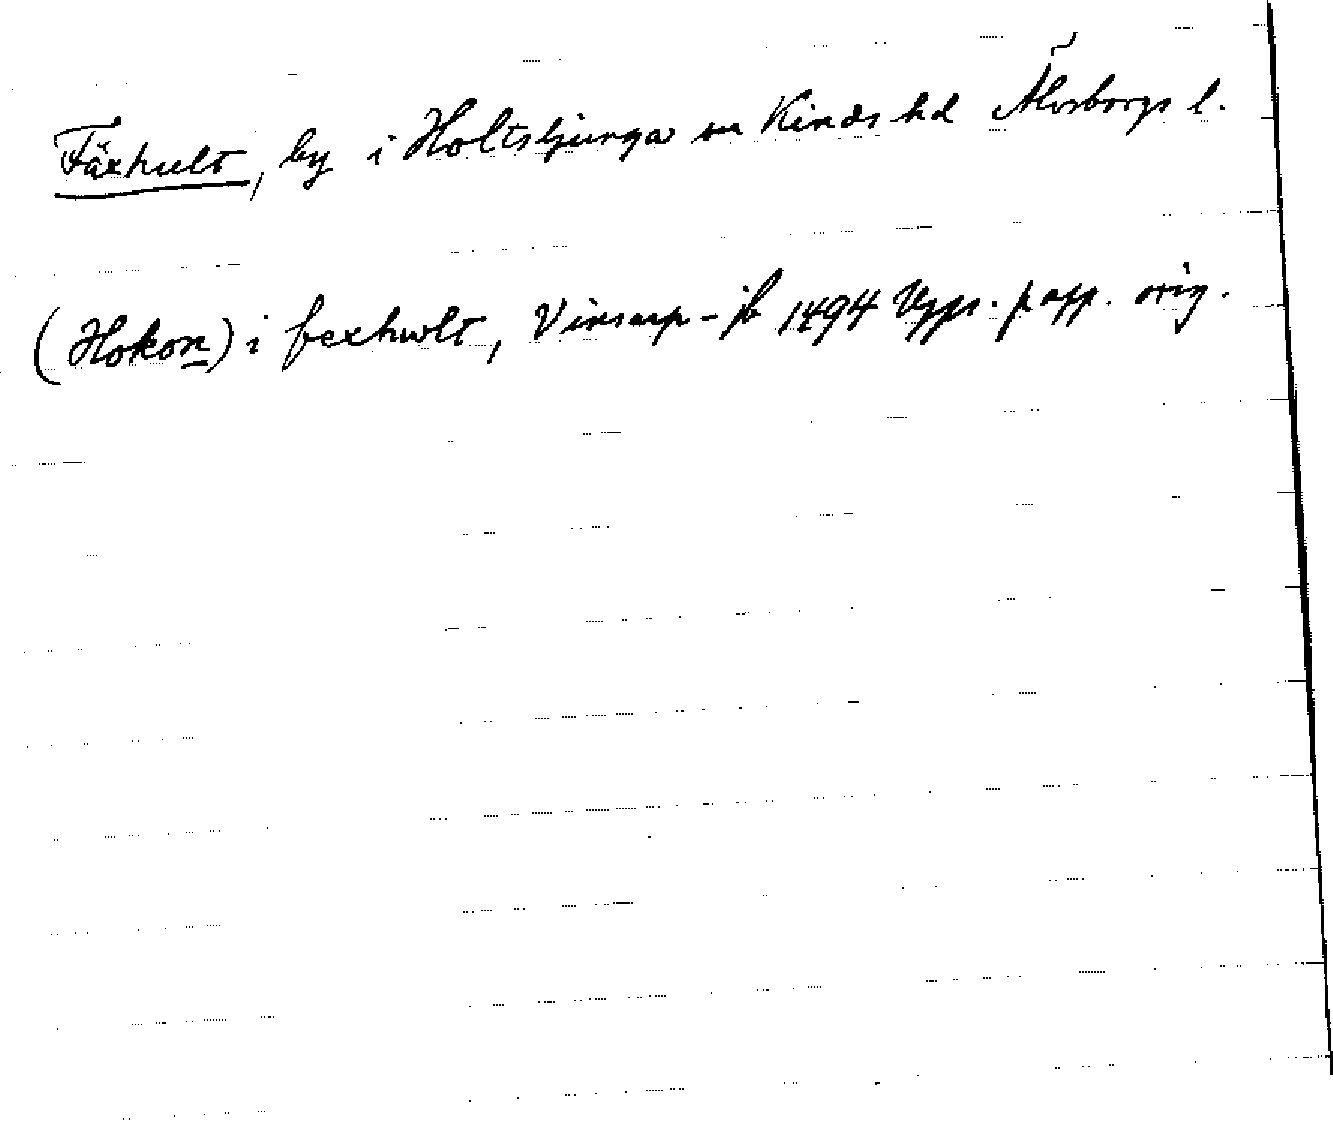 Fäxhult, by i Holtsljunga sn Kinds hd Älvsborgs l.
(Hokon) i fexhwlt, Vinsarp-jb 1494 Upps. papp. orig.